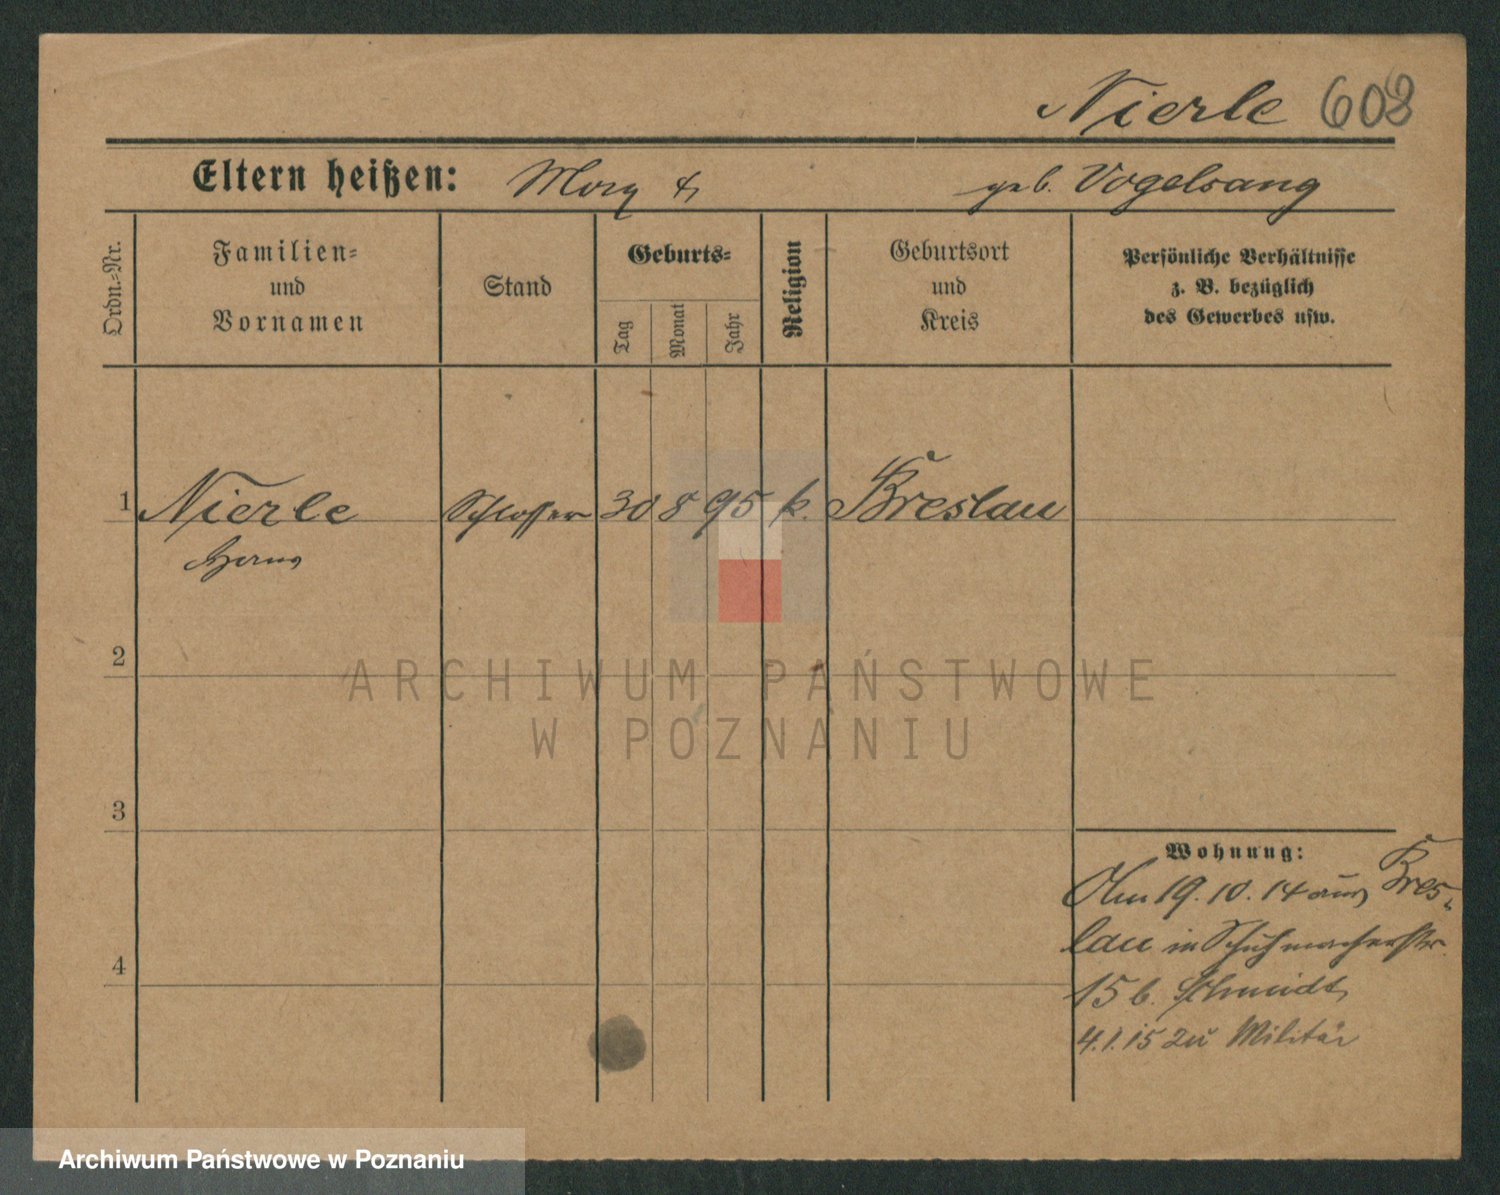 Nierle 608
Eltern heißen: geb. Vogelsang
Ordn.-Nr.
Familien-
und
Vornamen
Stand
Geburts-
Tag
Monat
Jahr
Religion
Geburtsort
und
Kreis
Persönliche Verhältnisse
z. B. bezüglich
des Gewerbes usw.
1 Nierle Schlosser 30 8 95 k. Breslau
2
3
4
Wohnung:
Am 19.10.14 aus Bres-
lau in Schuhmacherstr.
15 b. Schmidt
4.1.15 zu Militär
ARCHIWUM PAŃSTWOWE
W POZNANIU
Archiwum Państwowe w Poznaniu